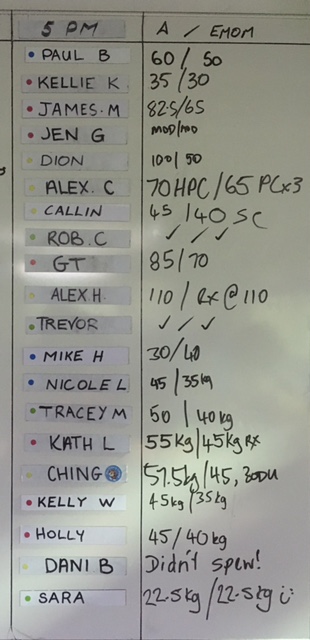 5 PM A / EMOM
PAUL B 60 / 50
KELLIE K 35 / 30
JAMES. M 82.5/65
JEN G MOD/MOD
DION 100/ 50
ALEX. C 70HPC/65 PCx3
CALLIN 45 /40 SC
ROB. C ✓ / ✓
GT 85/70
ALEX H. 110 / Rx @ 110
TREVOR ✓ / ✓
MIKE H 30/40
NICOLE L 45 / 35kg
TRACEY M 50 / 40kg
KATH L 55kg/45kg RX
CHING 57.5kg/45, 30DU
KELLY W 45kg/35kg
HOLLY 45/40kg
DANI B Didn't spew!
SARA 22.5kg/22.5kg